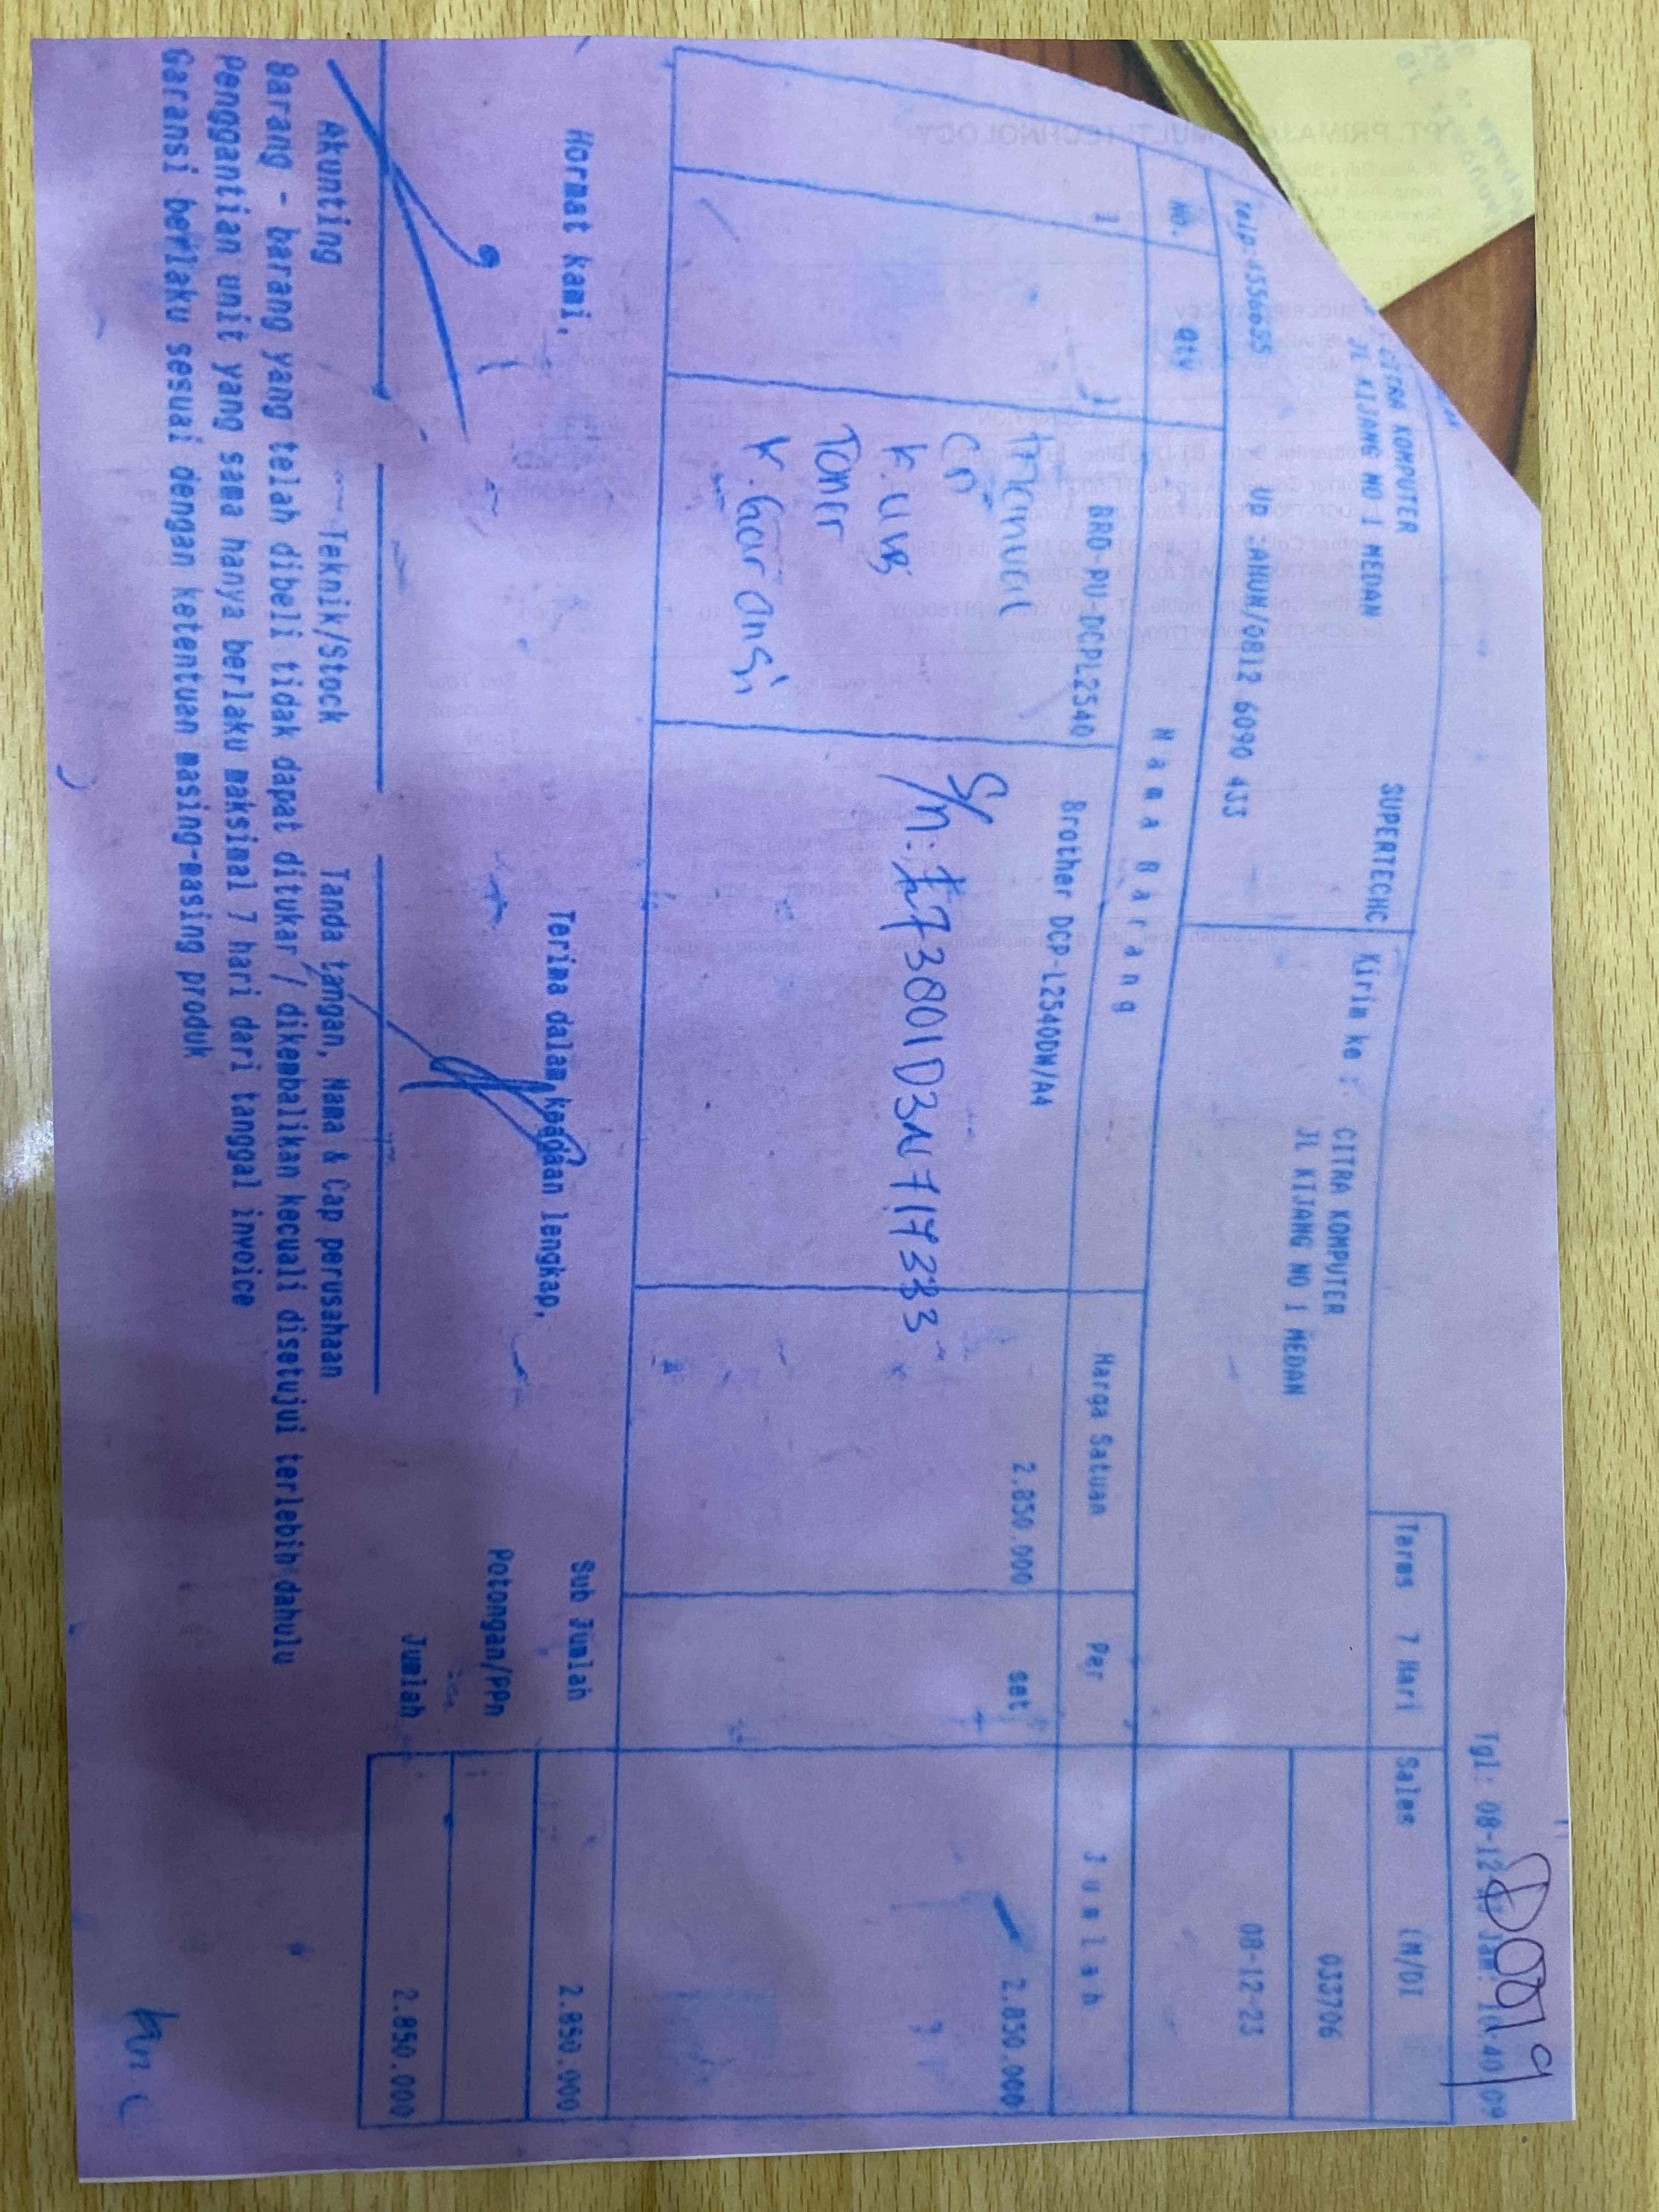 D0079
Tgl: 08-12-23 Jam: 10:40:09
Terms 7 Hari Sales LM/DI
CITRA KOMPUTER SUPERTECHC
JL KIJANG NO 1 MEDAN
Kirim ke : CITRA KOMPUTER
JL KIJANG NO 1 MEDAN
033706
Telp:4556655 UP ZAHUN/0812 6090 433
08-12-23
NO. Qty Nama Barang Harga Satuan Per Jumlah
1 1 BRD-PU-DCPL2540 Brother DCP-L2540DW/A4 2.850.000 set 2.850.000
Manual
CD
K. USB
Toner
K. Garansi
Hormat kami,
Terima dalam keadaan lengkap,
Sub Jumlah 2.850.000
Potongan/PPn
Jumlah 2.850.000
Akunting Teknik/Stock Tanda tangan, Nama & Cap perusahaan
Barang - barang yang telah dibeli tidak dapat ditukar / dikembalikan kecuali disetujui terlebih dahulu
Penggantian unit yang sama hanya berlaku maksimal 7 hari dari tanggal invoice
Garansi berlaku sesuai dengan ketentuan masing-masing produk